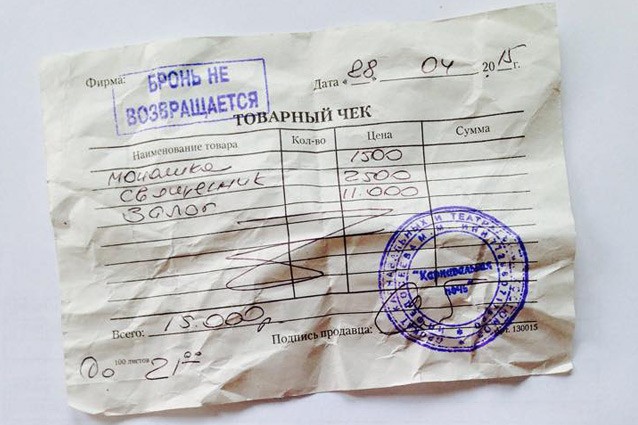 БРОНЬ НЕ
ВОЗВРАЩАЕТСЯ
Фирма:
Дата «28» 04 2015 г.
ТОВАРНЫЙ ЧЕК
Наименование товара Кол-во Цена Сумма
монашка 1500
священник 2500
залог 11.000
Всего: 15.000р
Подпись продавца:
До 21 00
100 листов
130015
"Карнавальная
ночь"